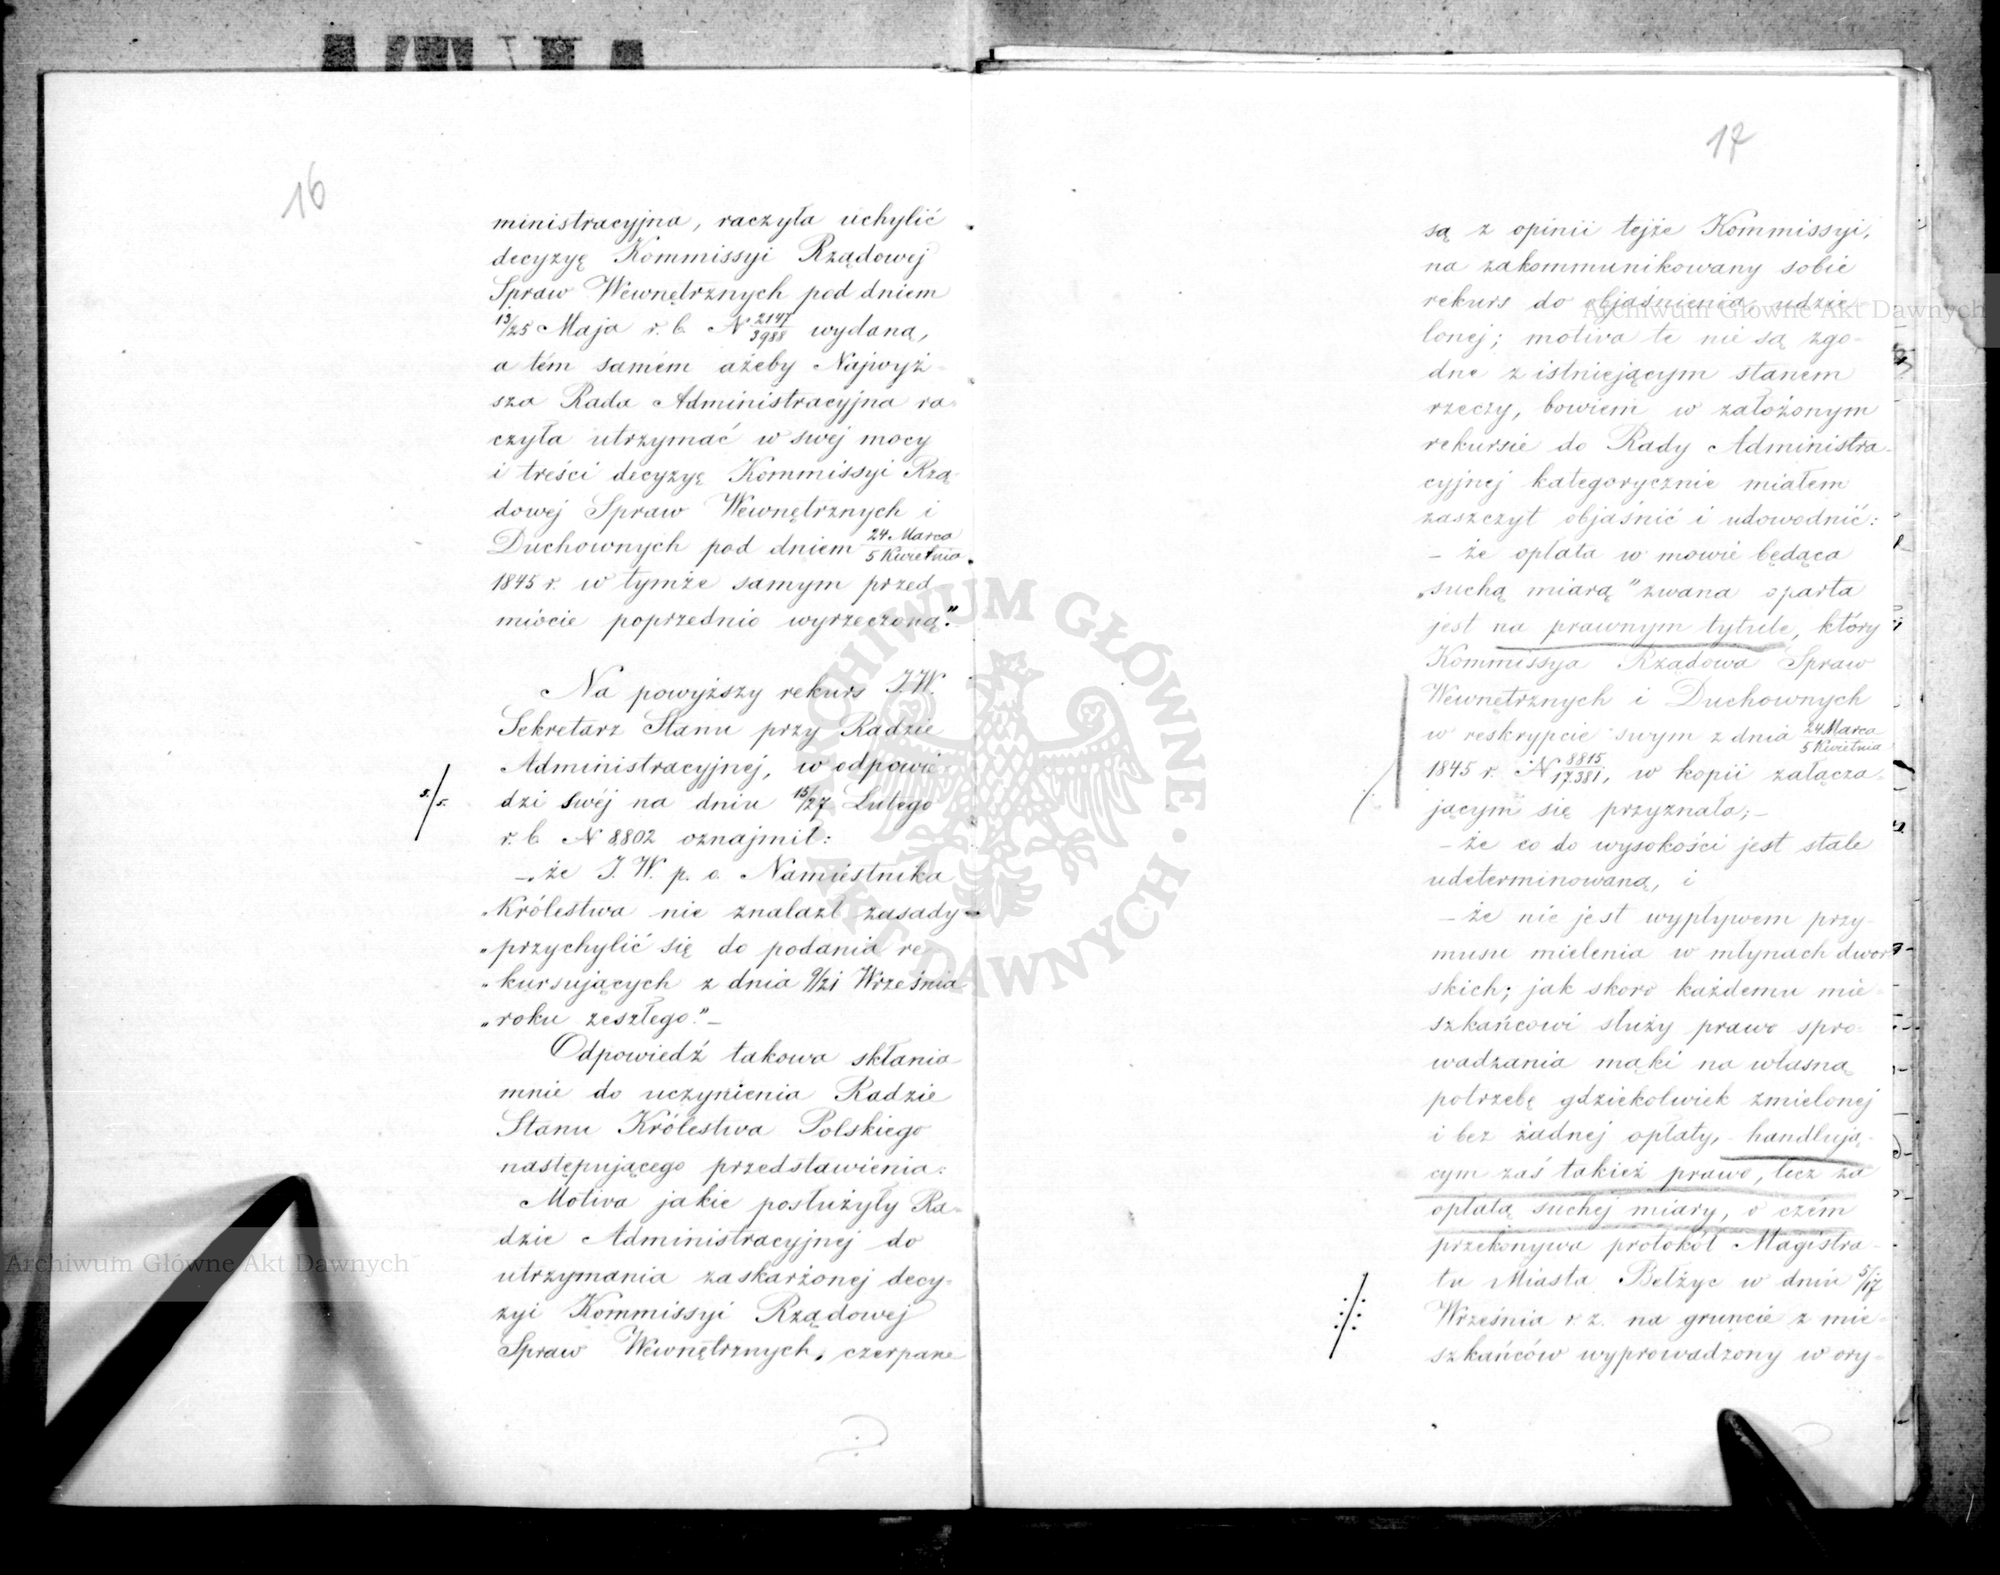 16
ministracyjna, raczyła uchylić
decyzyę Kommissyi Rządowej
Spraw Wewnętrznych pod dniem
13/25 Maja r. b. N 2147/3988 wydaną,
a tém samém ażeby Najwyż-
sza Rada Administracyjna ra-
czyła utrzymać w swej mocy
i treści decyzyę Kommissyi Rzą-
dowej Spraw Wewnętrznych i
Duchownych pod dniem 24 Marca/5 Kwietnia
1845 r. w tymże samym przed
miocie poprzednio wyrzeczoną."
Na powyższy rekurs J.W.
Sekretarz Stanu przy Radzie
Administracyjnej, w odpowie
dzi swéj na dniu 15/27 Lutego
r. b. N 8802 oznajmił:
–„że J. W. p. o. Namiestnika
„Królestwa nie znalazł zasady
„przychylić się do podania re
„kursujących z dnia 9/21 Września
„roku zeszłego."–
Odpowiedź takowa skłania
mnie do uczynienia Radzie
Stanu Królestwa Polskiego
następującego przedstawienia:
Motiva jakie posłużyły Ra-
dzie Administracyjnej do
utrzymania zaskarżonej decy-
zyi Kommissyi Rządowej
Spraw Wewnętrznych, czerpane
17
są z opinii tejże Kommissyi,
na zakommunikowany sobie
rekurs do objaśnienia, udzie-
lonej; motiva te nie są zgo-
dne z istniejącym stanem
rzeczy, bowiem w założonym
rekursie do Rady Administra-
cyjnej kategorycznie miałem
zaszczyt objaśnić i udowodnić:
– że opłata w mowie będąca
„suchą miarą" zwana oparta
jest na prawnym tytule, który
Kommissya Rządowa Spraw
Wewnętrznych i Duchownych
w reskrypcie swym z dnia 24 Marca/5 Kwietnia
1845 r. N 8815/17381, w kopii załącza-
jącym się przyznała;–
– że co do wysokości jest stale
udeterminowaną, i
– że nie jest wypływem przy-
musu mielenia w młynach dwor
skich; jak skoro każdemu mie-
szkańcowi służy prawo spro-
wadzania mąki na własną
potrzebę gdziekolwiek zmielonej
i bez żadnej opłaty, – handlują-
cym zaś takież prawo, lecz za
opłatą suchej miary, o czém
przekonywa protokół Magistra-
tu Miasta Bełżyc w dniu 5/17
Września r. z. na gruncie z mie-
szkańców wyprowadzony w ory-
Archiwum Główne Akt Dawnych
Archiwum Główne Akt Dawnych
ARCHIWUM GŁÓWNE • AKT DAWNYCH •